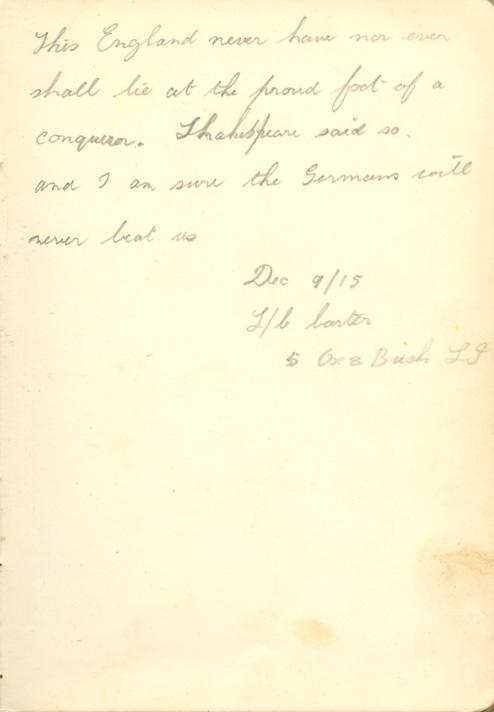 This England never have nor ever
shall lie at the proud foot of a
conqueror. Shakespeare said so.
and I am sure the Germans will
never beat us
Dec 9/15
L/C Carter
5 Ox & Bucks L I